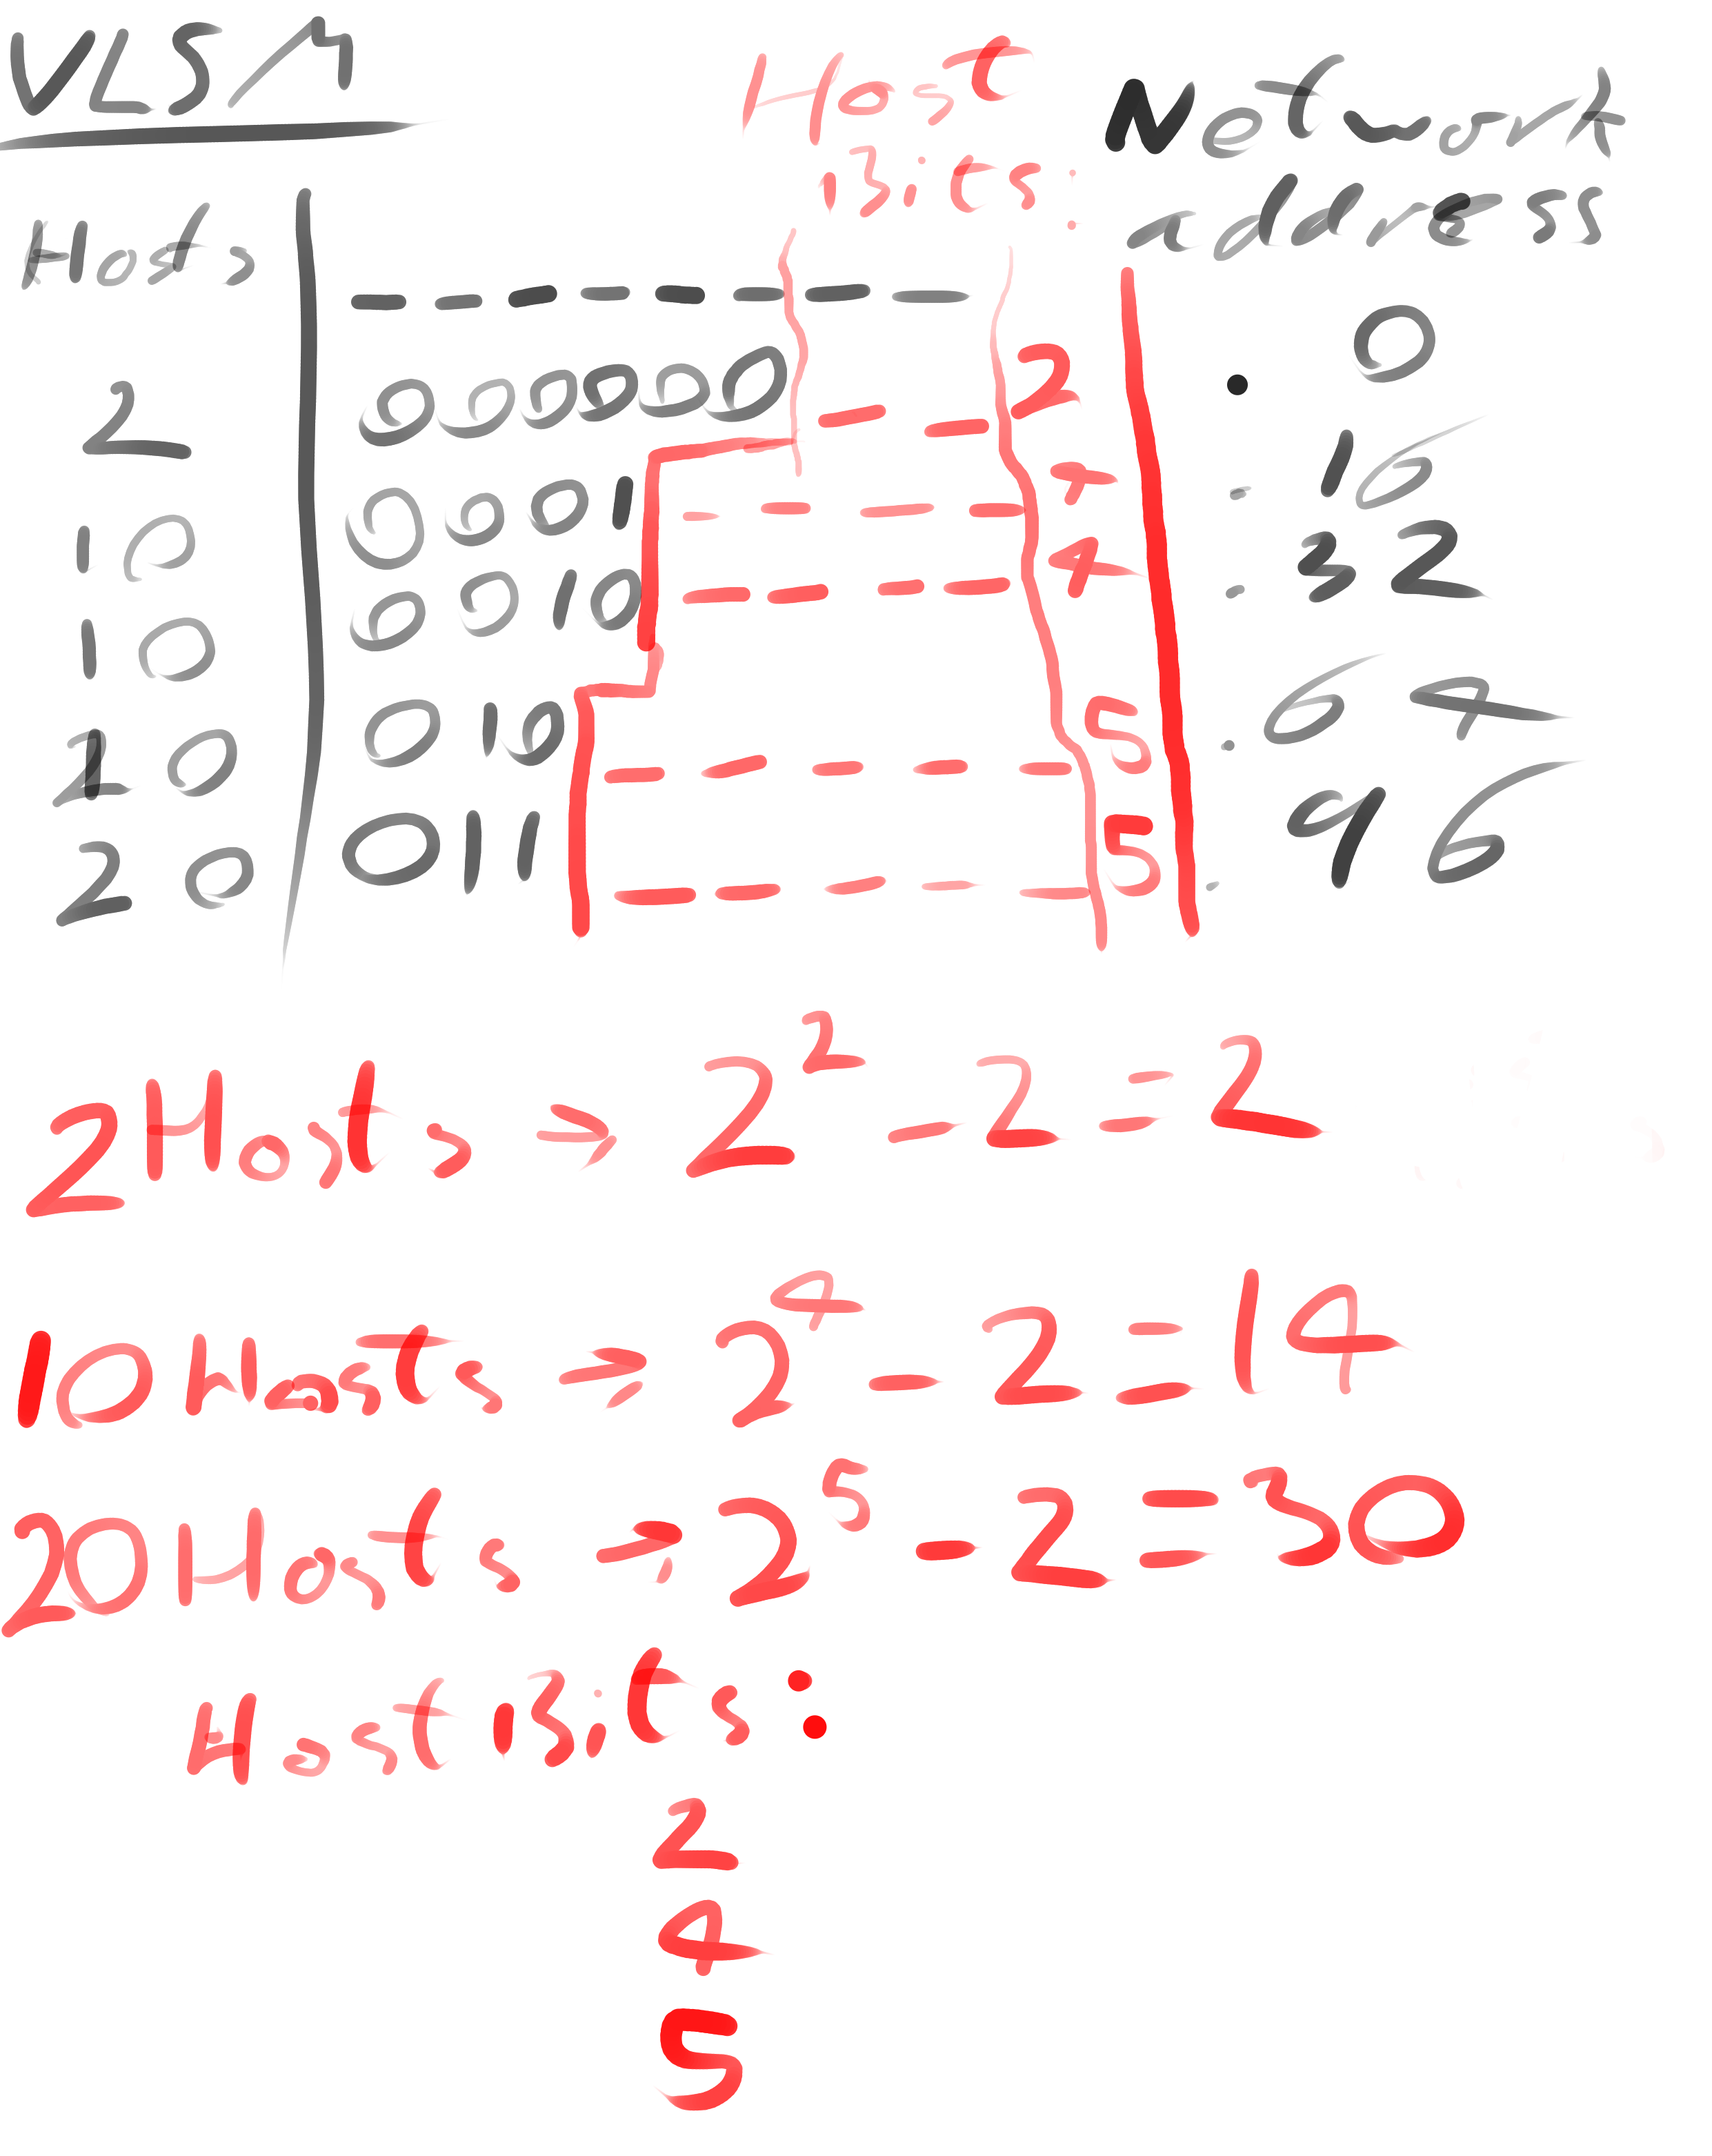 VLSM
Host
Bits:
Network
address
Hosts
_ _ _ _ _ _ _ _
2 000000 _ _ 2 . 0
10 0001 _ _ _ _ 4 . 16
10 0010 _ _ _ _ 4 . 32
20 010 _ _ _ _ _ 5 . 64
20 011 _ _ _ _ _ 5 . 96
2 Hosts → 2² - 2 = 2
10 Hosts → 2⁴ - 2 = 14
20 Hosts → 2⁵ - 2 = 30
Host Bits:
2
4
5